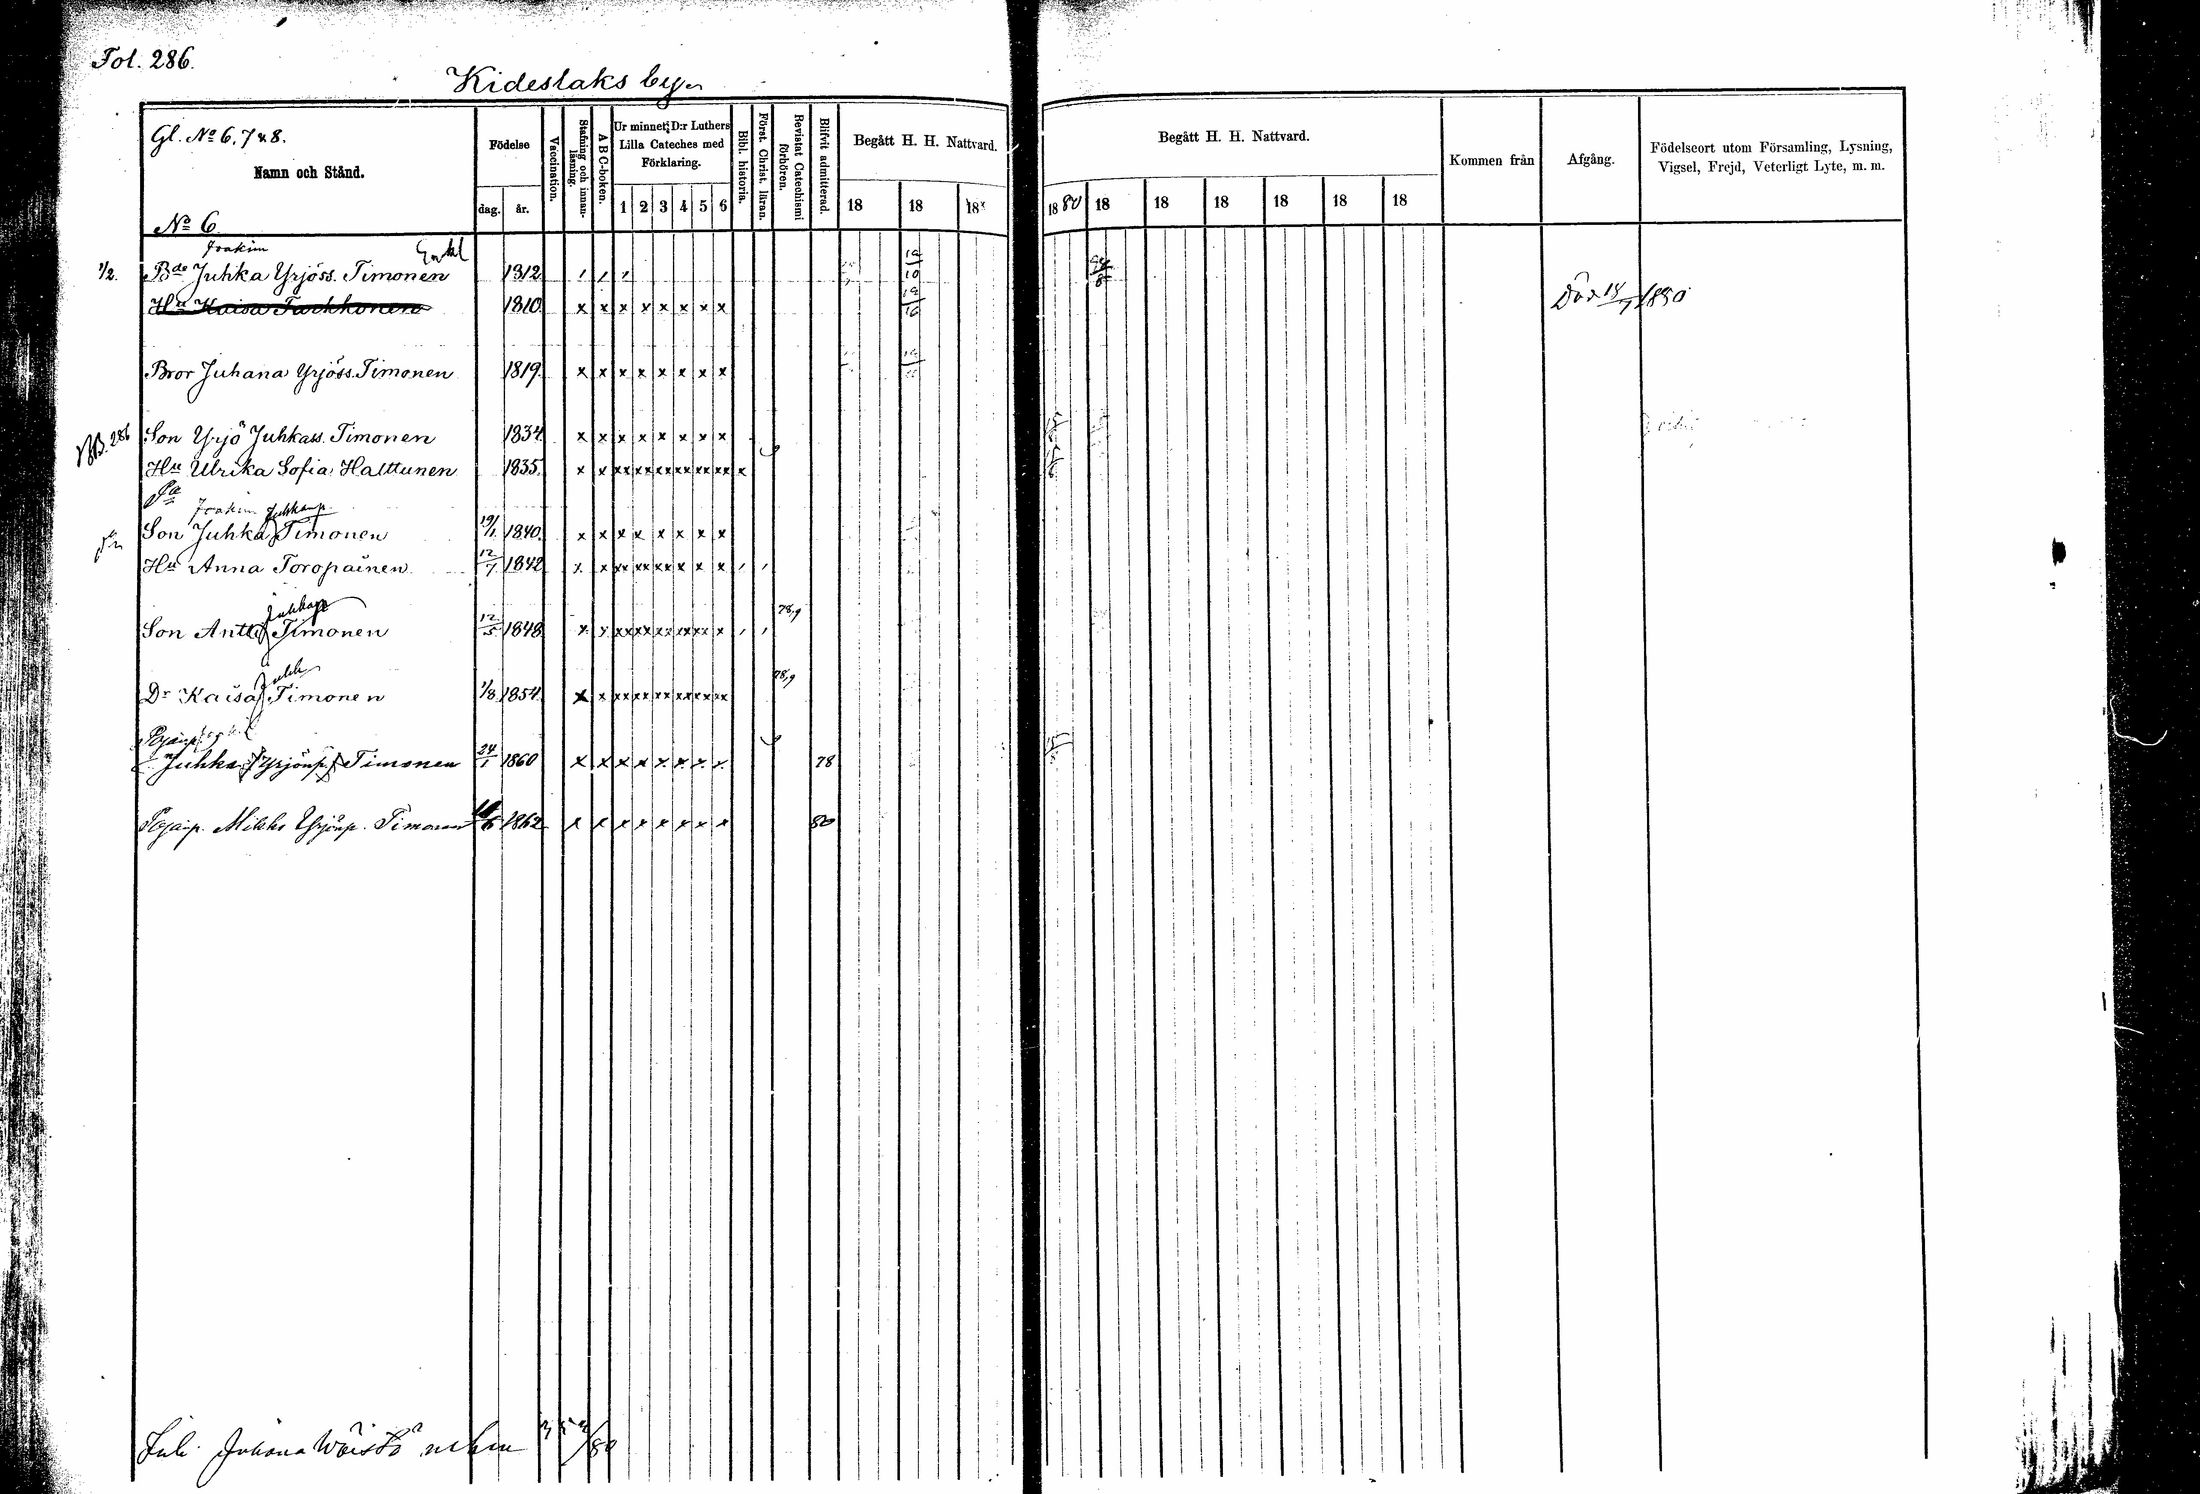 Fol. 286.
Kideslaks by
Gl. No 6, 7 & 8.
Namn och Stånd.
No 6
Födelse
dag. år.
Vaccination.
Stafning och innanläsning.
A B C-boken.
Ur minnet: D:r Luthers Lilla Cateches med Förklaring.
1 2 3 4 5 6
Bibl. historia.
Först. Christ. läran.
Bevistat Catechismi förhören.
Blifvit admitterad.
Begått H. H. Nattvard.
18 18 18
Begått H. H. Nattvard.
1880 18 18 18 18 18 18
Kommen från
Afgång.
Födelseort utom Församling, Lysning, Vigsel, Frejd, Veterligt Lyte, m. m.
Joakim Enkl
1/2. Bde Juhka Yrjöss. Timonen 1812 / / /
Hu Kaisa Turkkonen 1810 x x x x x x x x Död 18/7 1880
Bror Juhana Yrjöss. Timonen 1819 x x x x x x x x
NB. 286 Son Yrjö Juhkass. Timonen 1834 x x x x x x x x
Hu Ulrika Sofia Halttunen 1835 x x xx xx xx xx xx xx x
Joakim Juhkanp.
Son Juhka Timonen 19/1 1840 x x x x x x x x
Hu Anna Toropainen 12/7 1842 x x xx xx xx x x x / /
Juhkanp
78,9
Son Antti Timonen 12/5 1848 x x xx xx xx xx xx x / /
Juhk
78,9
Dr Kaisa Timonen 1/8 1854 x x xx xx xx xx xx xx
Pojanp
Juhka Yrjönp. Timonen 24/1 1860 x x x x x x x x 78
Pojanp. Mikko Yrjönp. Timonen 1862 x x x x x x x x 80
Juhana Wäistö